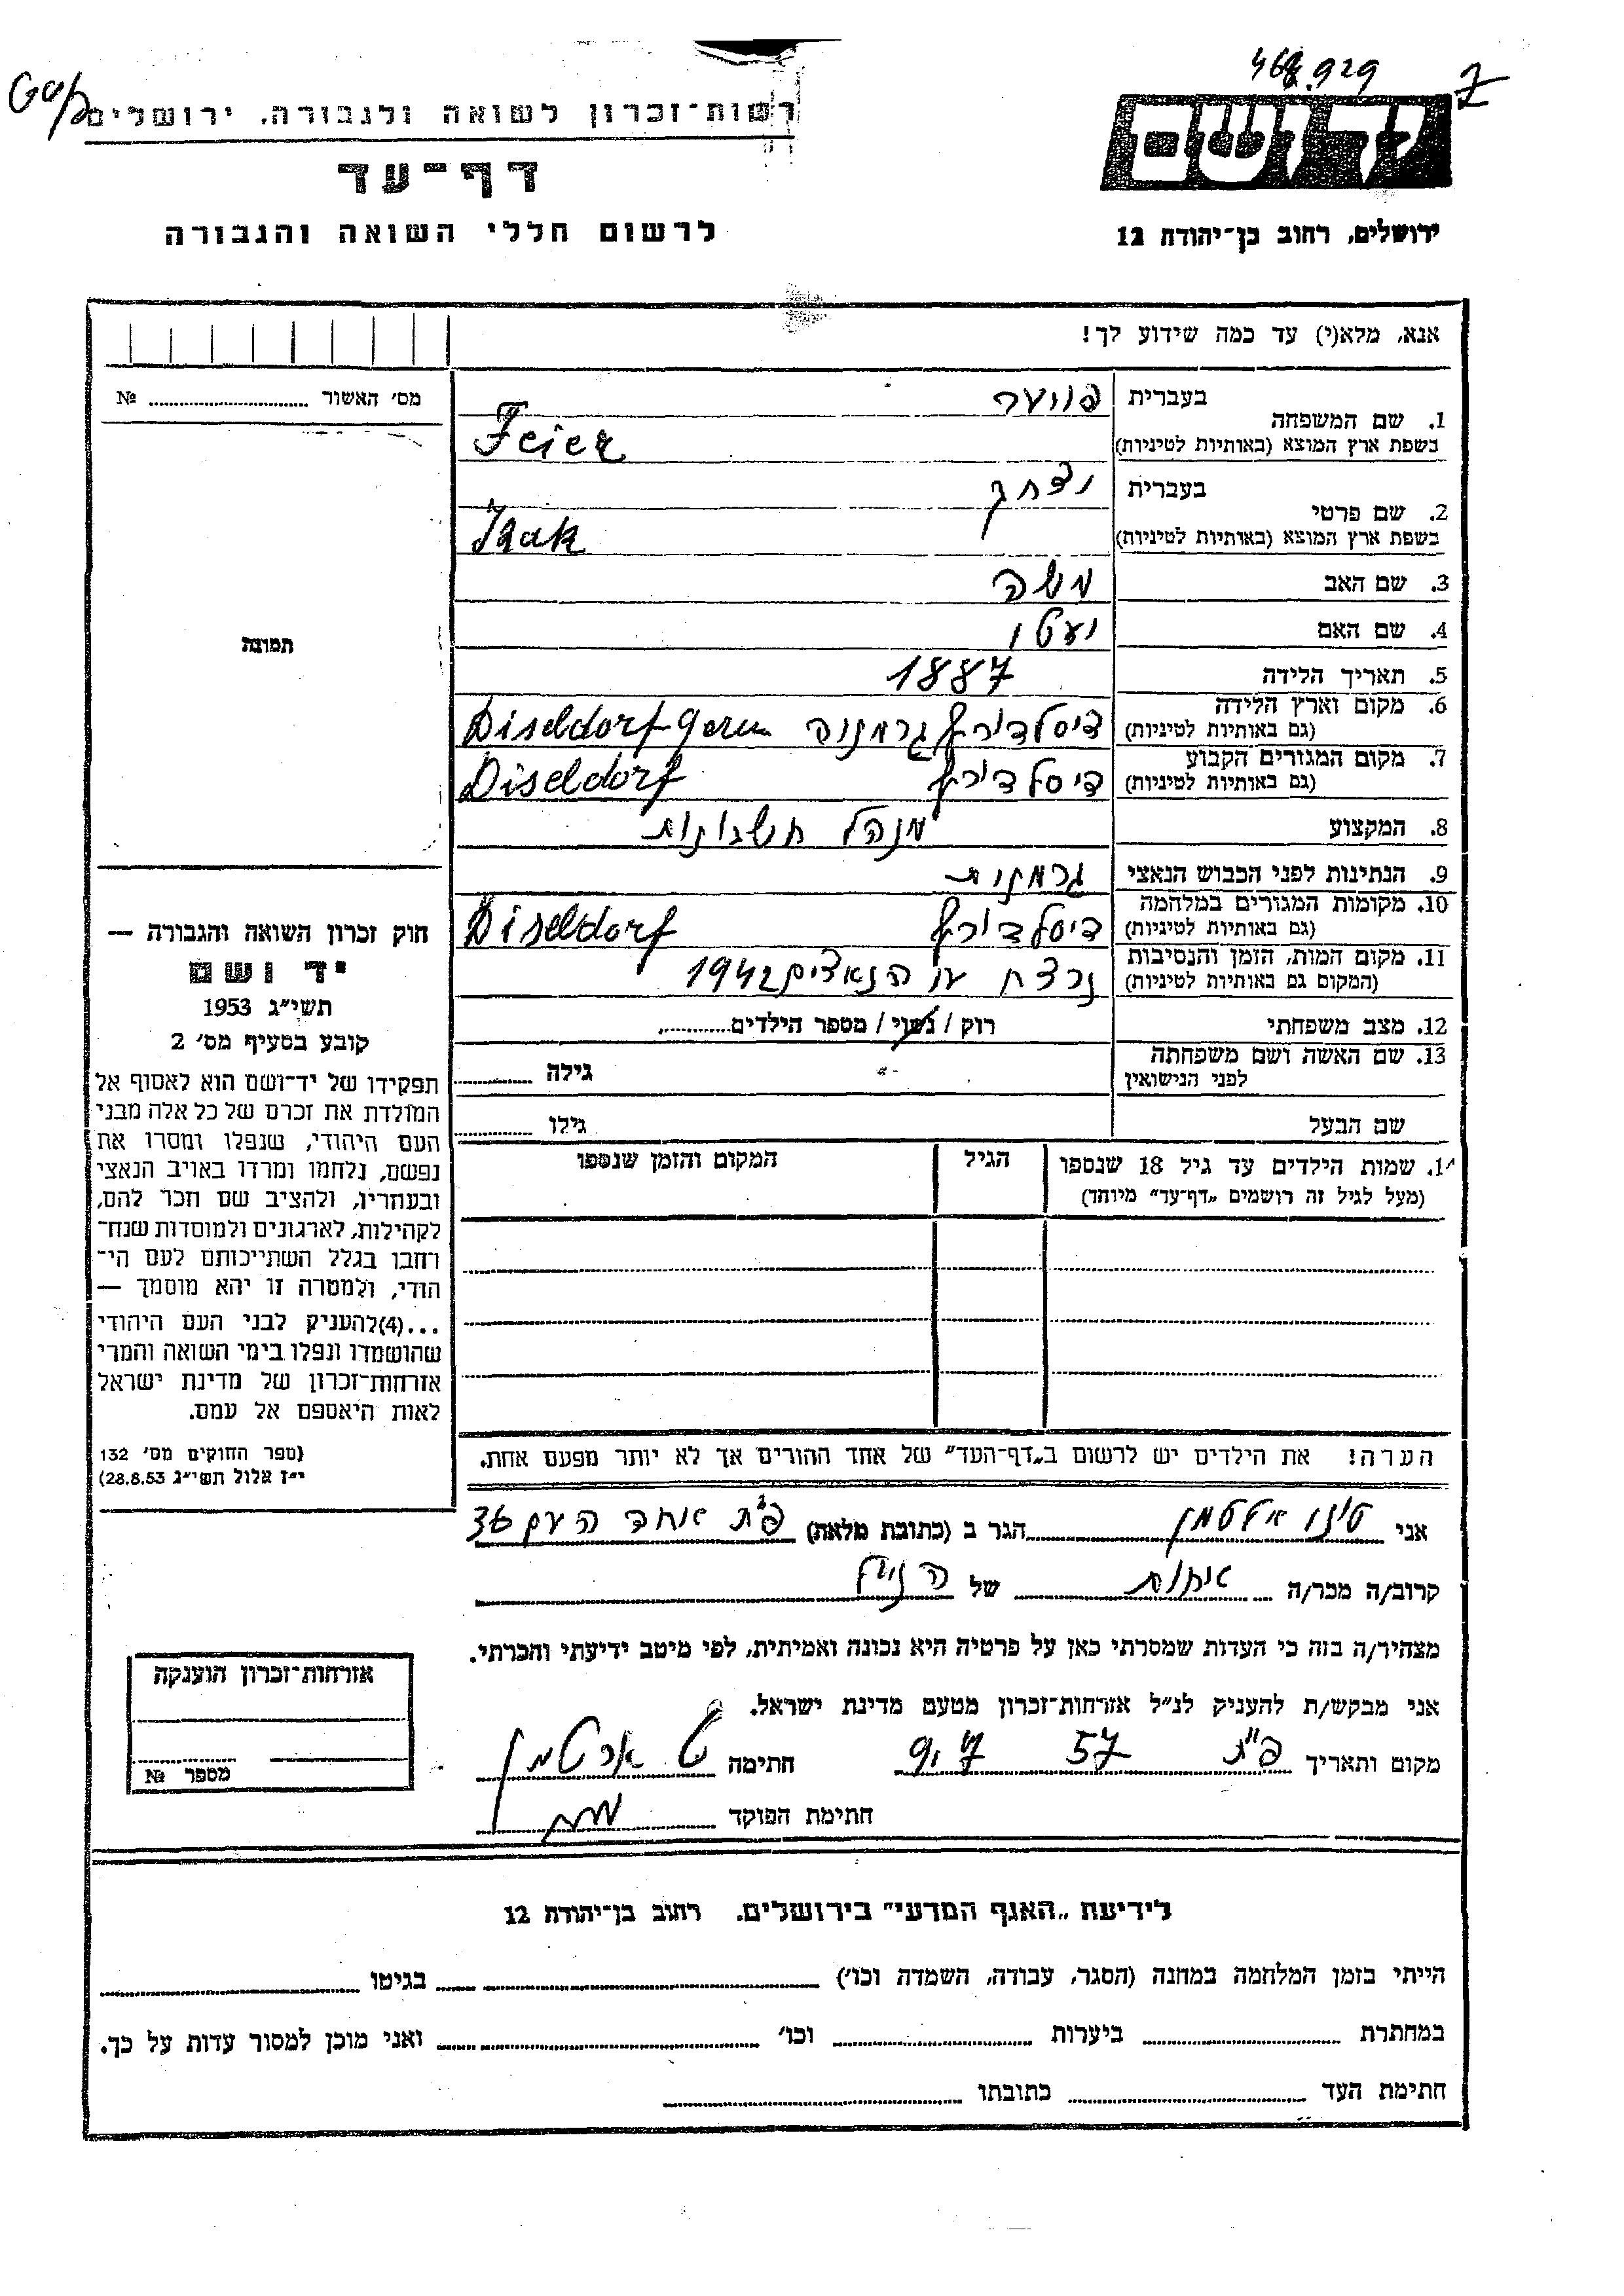 רשות-זכרון לשואה ולגבורה, ירושלים
דף-עד
לרשום חללי השואה והגבורה
ירושלים, רחוב בן-יהודה 12
אנא, מלא(י) עד כמה שידוע לך!
מס' האשור № ........
תמונה
חוק זכרון השואה והגבורה —
יד ושם
תשי"ג 1953
קובע בסעיף מס' 2
תפקידו של יד-ושם הוא לאסוף אל
המולדת את זכרם של כל אלה מבני
העם היהודי, שנפלו ומסרו את
נפשם, נלחמו ומרדו באויב הנאצי
ובעוזריו, ולהציב שם וזכר להם,
לקהילות, לארגונים ולמוסדות שנח-
רחבו בגלל השתייכותם לעם הי-
הודי, ולמטרה זו יהא מוסמך —
...(4)להעניק לבני העם היהודי
שהושמדו ונפלו בימי השואה והמרי
אזרחות-זכרון של מדינת ישראל
לאות היאספם אל עמם.
(ספר החוקים מס' 132
י"ז אלול תשי"ג 28.8.53)
בעברית פייער
1. שם המשפחה
בשפת ארץ המוצא (באותיות לטיניות) Feier
בעברית יצחק
2. שם פרטי
בשפת ארץ המוצא (באותיות לטיניות) Izak
3. שם האב משה
4. שם האם יעטי
5. תאריך הלידה 1887
6. מקום וארץ הלידה דיסלדורף גרמניה Diseldorf Germ
(גם באותיות לטיניות)
7. מקום המגורים הקבוע דיסלדורף Diseldorf
(גם באותיות לטיניות)
8. המקצוע מנהל חשבונות
9. הנתינות לפני הכבוש הנאצי גרמנית
10. מקומות המגורים במלחמה דיסלדורף Diseldorf
(גם באותיות לטיניות)
11. מקום המות, הזמן והנסיבות נרצח ע"י הנאצים 1942
(המקום גם באותיות לטיניות)
12. מצב משפחתי רוק / נשוי / מספר הילדים........
13. שם האשה ושם משפחתה גילה ........
לפני הנישואין
שם הבעל גילו ........
14. שמות הילדים עד גיל 18 שנספו הגיל המקום והזמן שנספו
(מעל לגיל זה רושמים "דף-עד" מיוחד)
הערה! את הילדים יש לרשום ב"דף-העד" של אחד ההורים אך לא יותר מפעם אחת.
אני אלטמן הגר ב (כתובת מלאה) פ"ת אחד העם 36
קרוב/ה מכר/ה אחות של הנ"ל
מצהיר/ה בזה כי העדות שמסרתי כאן על פרטיה היא נכונה ואמיתית, לפי מיטב ידיעתי והכרתי.
אני מבקש/ת להעניק לנ"ל אזרחות-זכרון מטעם מדינת ישראל.
מקום ותאריך פ"ת 57 9.7 חתימה
חתימת הפוקד
אזרחות-זכרון הוענקה
מספר №
לידיעת "האגף המדעי" בירושלים, רחוב בן-יהודה 12
הייתי בזמן המלחמה במחנה (הסגר, עבודה, השמדה וכו') ........ בגיטו ........
במחתרת ........ ביערות ........ וכו' ........ ואני מוכן למסור עדות על כך.
חתימת העד ........ כתובתו ........